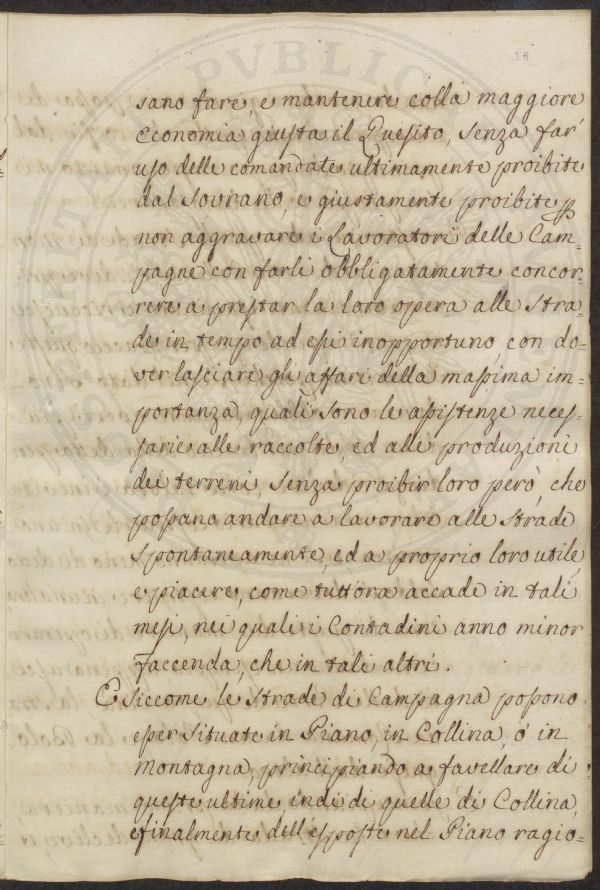 sano fare, e mantenere colla maggiore
economia giusta il Quesito, senza far
uso delle comandate ultimamente proibite
dal Sovrano, e giustamente proibite p
non aggravare i Lavoratori delle Cam=
pagne con farli obbligatamente concor=
rere a prestar la loro opera alle stra=
de in tempo ad essi inopportuno, con do=
ver lasciare gli affari della massima im=
portanza, quali sono le assistenze neces=
sarie alle raccolte, ed alle produzioni
dei terreni, senza proibir loro però, che
possano andare a lavorare alle strade
spontaneamente, ed a proprio loro utile,
e piacere, come tuttora accade in tali
mesi, nei quali i Contadini anno minor
faccenda, che in tali altri.
E siccome le strade di Campagna possono
esser situate in Piano, in Collina, ò in
Montagna, principiando a favellare di
queste ultime indi di quelle di Collina,
e finalmente dell'esposte nel Piano ragio=